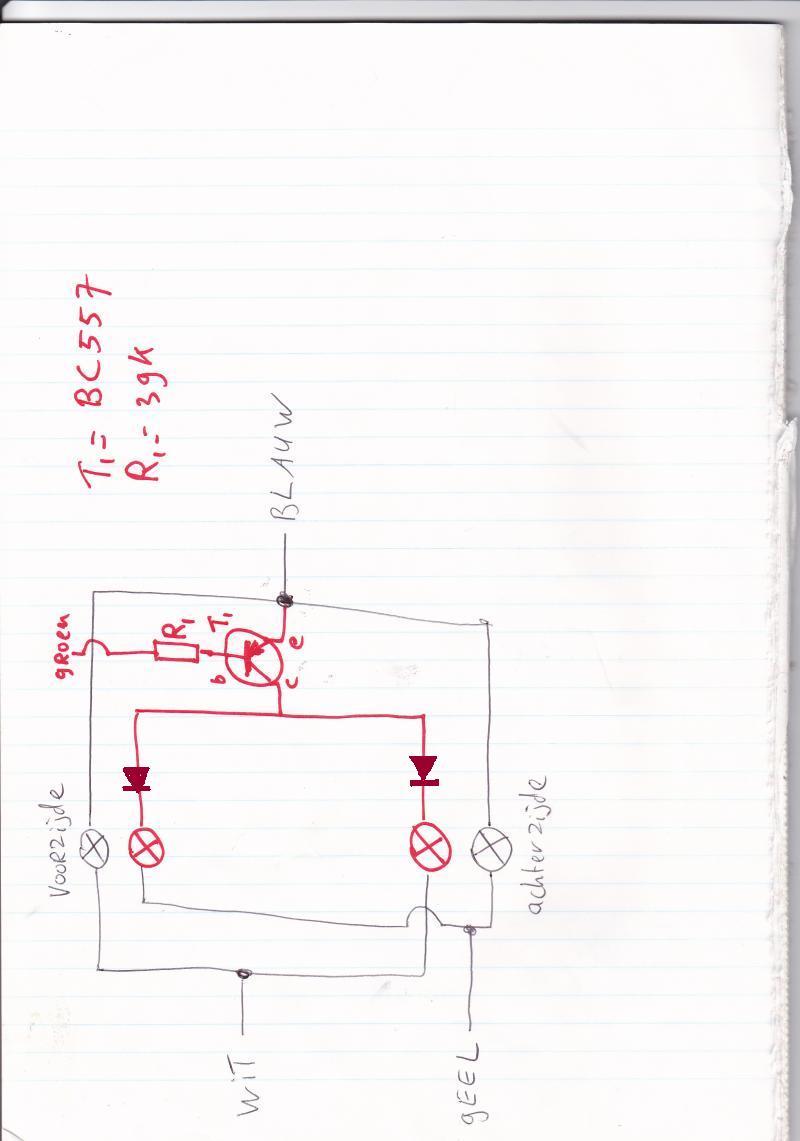 T1 = BC557
R1 = 39K
BLAUW
gROEN
R1
T1
b
e
c
VOORZIJDE
achterzijde
WiT
gEEL